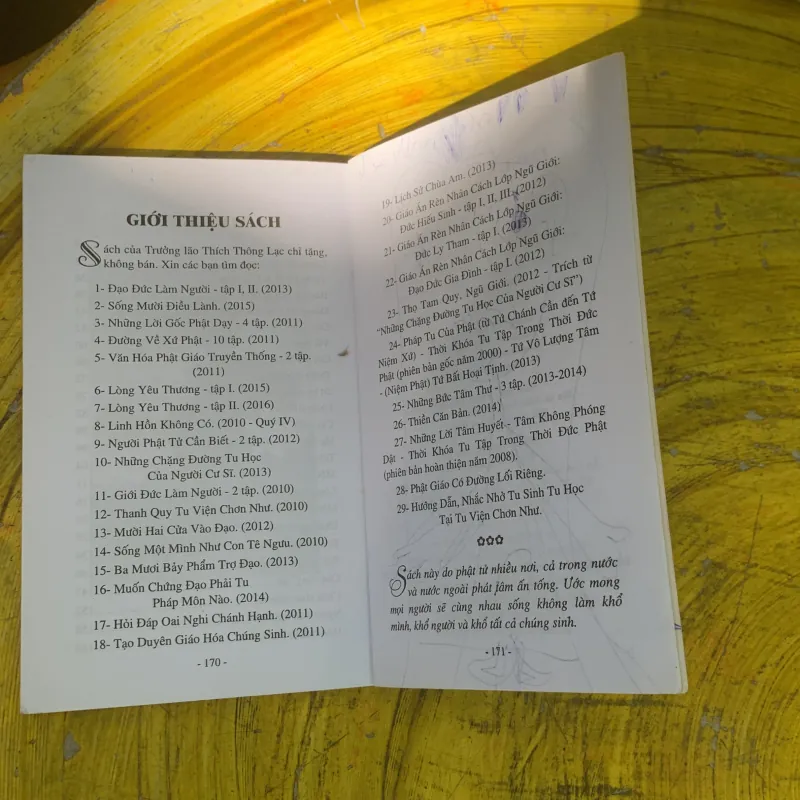 GIỚI THIỆU SÁCH
Sách của Trưởng lão Thích Thông Lạc chỉ tặng,
không bán. Xin các bạn tìm đọc:
1- Đạo Đức Làm Người - tập I, II. (2013)
2- Sống Mười Điều Lành. (2015)
3- Những Lời Gốc Phật Dạy - 4 tập. (2011)
4- Đường Về Xứ Phật - 10 tập. (2011)
5- Văn Hóa Phật Giáo Truyền Thống - 2 tập.
(2011)
6- Lòng Yêu Thương - tập I. (2015)
7- Lòng Yêu Thương - tập II. (2016)
8- Linh Hồn Không Có. (2010 - Quý IV)
9- Người Phật Tử Cần Biết - 2 tập. (2012)
10- Những Chặng Đường Tu Học
Của Người Cư Sĩ. (2013)
11- Giới Đức Làm Người - 2 tập. (2010)
12- Thanh Quy Tu Viện Chơn Như. (2010)
13- Mười Hai Cửa Vào Đạo. (2012)
14- Sống Một Mình Như Con Tê Ngưu. (2010)
15- Ba Mươi Bảy Phẩm Trợ Đạo. (2013)
16- Muốn Chứng Đạo Phải Tu
Pháp Môn Nào. (2014)
17- Hỏi Đáp Oai Nghi Chánh Hạnh. (2011)
18- Tạo Duyên Giáo Hóa Chúng Sinh. (2011)
- 170 -
19- Lịch Sử Chùa Am. (2013)
20- Giáo Án Rèn Nhân Cách Lớp Ngũ Giới:
Đức Hiếu Sinh - tập I, II, III. (2012)
21- Giáo Án Rèn Nhân Cách Lớp Ngũ Giới:
Đức Ly Tham - tập I. (2013)
22- Giáo Án Rèn Nhân Cách Lớp Ngũ Giới:
Đạo Đức Gia Đình - tập I. (2012)
23- Thọ Tam Quy, Ngũ Giới. (2012 - Trích từ
"Những Chặng Đường Tu Học Của Người Cư Sĩ")
24- Pháp Tu Của Phật (từ Tứ Chánh Cần đến Tứ
Niệm Xứ) - Thời Khóa Tu Tập Trong Thời Đức
Phật (phiên bản gốc năm 2000) - Tứ Vô Lượng Tâm
- (Niệm Phật) Tứ Bất Hoại Tịnh. (2013)
25- Những Bức Tâm Thư - 3 tập. (2013-2014)
26- Thiền Căn Bản. (2014)
27- Những Lời Tâm Huyết - Tâm Không Phóng
Dật - Thời Khóa Tu Tập Trong Thời Đức Phật
(phiên bản hoàn thiện năm 2008).
28- Phật Giáo Có Đường Lối Riêng.
29- Hướng Dẫn, Nhắc Nhở Tu Sinh Tu Học
Tại Tu Viện Chơn Như.
Sách này do phật tử nhiều nơi, cả trong nước
và nước ngoài phát tâm ấn tống. Ước mong
mọi người sẽ cùng nhau sống không làm khổ
mình, khổ người và khổ tất cả chúng sinh.
- 171 -